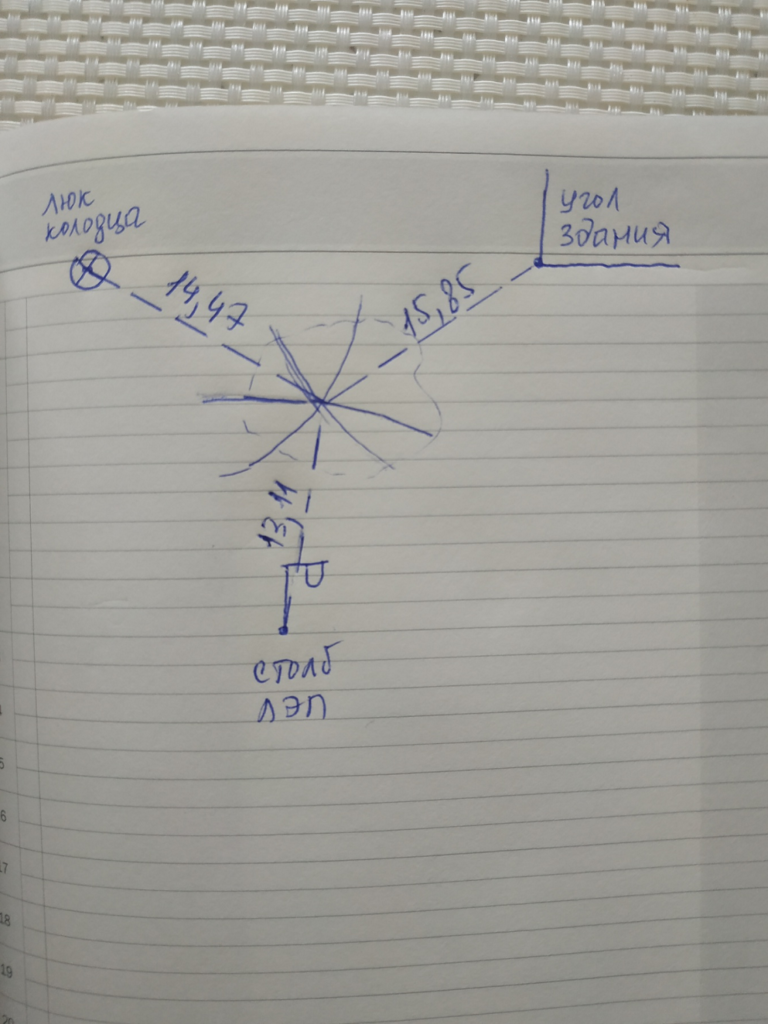 люк
колодца
угол
здания
14,47
15,85
13,11
столб
ЛЭП
5
6
17
18
19
20